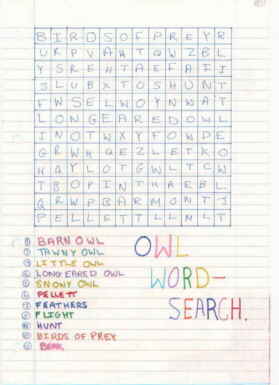 B I R D S O F P R E Y R
U R P V A H T Q W Z B L
Y S R E H T A E F A F I
J L U B X T O S H U N T
F W S E L W O Y N W A T
L O N G E A R E D O W L
I N O T W X Y F O W D E
G R W H Q E Z L E T K O
H A Y L O T G W L T C W
T B O P I N T H A E B L
Q R W P B A R M O N T I
P E L L E T T L L N L T
① BARN OWL
② TAWNY OWL
③ LITTLE OWL
④ LONG EARED OWL
⑤ SNOWY OWL
⑥ PELLETT
⑦ FEATHERS
⑧ FLIGHT
⑨ HUNT
⑩ BIRDS OF PREY
⑪ BEAK
OWL
WORD-
SEARCH.